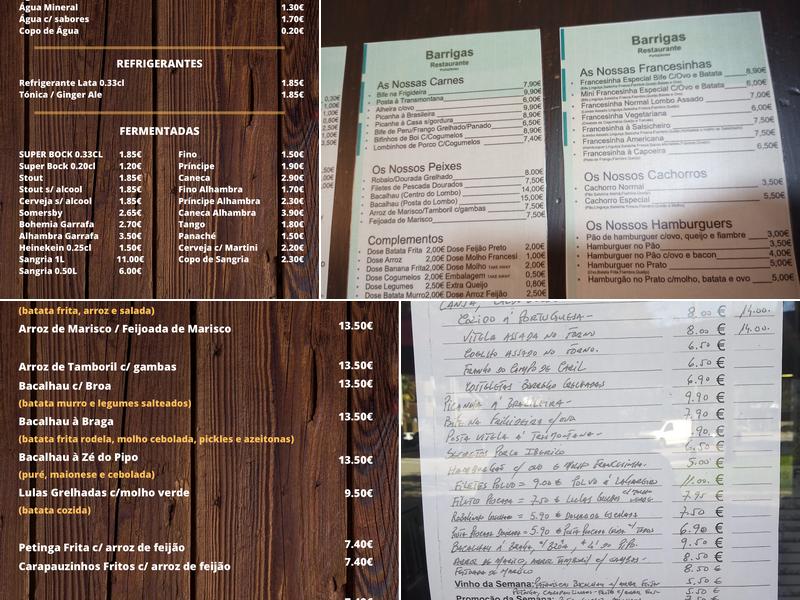 Água Mineral 1.30€
Água c/ sabores 1.70€
Copo de Água 0.20€
REFRIGERANTES
Refrigerante Lata 0.33cl 1.85€
Tónica / Ginger Ale 1.85€
FERMENTADAS
SUPER BOCK 0.33CL 1.85€ Fino 1.50€
Super Bock 0.20cl 1.20€ Príncipe 1.90€
Stout 1.85€ Caneca 2.90€
Stout s/ alcool 1.85€ Fino Alhambra 1.70€
Cerveja s/ alcool 1.85€ Príncipe Alhambra 2.30€
Somersby 2.65€ Caneca Alhambra 3.90€
Bohemia Garrafa 2.70€ Tango 1.80€
Alhambra Garrafa 3.50€ Panaché 1.50€
Heinekein 0.25cl 1.50€ Cerveja c/ Martini 2.20€
Sangria 1L 11.00€ Copo de Sangria 2.30€
Sangria 0.50L 6.00€
Barrigas
Restaurante
As Nossas Carnes
Bife na Frigideira 7,90€
Posta à Transmontana 6,00€
Alheira c/ovo 9,90€
Picanha à Brasileira 8,90€
Picanha à Casa s/gordura 6,50€
Bife de Peru/Frango Grelhado/Panado 8,90€
Bifinhos de Boi C/Cogumelos 7,40€
Lombinhos de Porco C/Cogumelos
Os Nossos Peixes
Robalo/Dourada Grelhado 8,00€
Filetes de Pescada Dourados 7,50€
Bacalhau (Centro do Lombo) 14,00€
Bacalhau (Posta do Lombo) 15,00€
Arroz de Marisco/Tamboril c/gambas 7,50€
Feijoada de Marisco 7,50€
Complementos
Dose Batata Frita 2,00€ Dose Feijão Preto 2,00€
Dose Arroz 2,00€ Dose Molho Francesi 1,00€
Dose Banana Frita 2,00€ Dose Molho TAKE AWAY 2,00€
Dose Cogumelos 2,00€ Embalagem TAKE AWAY 0,50€
Dose Legumes 2,50€ Extra Queijo 0,80€
Dose Batata Murro 2,00€ Dose Arroz Feijão 2,50€
Barrigas
Restaurante
As Nossas Francesinhas
Francesinha Especial Bife C/Ovo e Batata 8,90€
Mini Francesinha Especial C/Ovo e Batata 6,00€
Francesinha Normal Lombo Assado 7,00€
Francesinha Vegetariana 6,00€
Francesinha à Salsicheiro 7,50€
Francesinha Americana 7,50€
Francesinha à Capoeira 6,50€
Os Nossos Cachorros
Cachorro Normal 3,50€
Cachorro Especial 5,50€
Os Nossos Hamburguers
Pão de hamburguer c/ovo, queijo e fiambre 3,00€
Hamburguer no Pão 3,50€
Hamburguer no Pão c/ovo e bacon 4,00€
Hamburguer no Prato 5,00€
Hamburgão no Prato c/molho, batata e ovo 5,00€
(batata frita, arroz e salada)
Arroz de Marisco / Feijoada de Marisco 13.50€
Arroz de Tamboril c/ gambas 13.50€
Bacalhau c/ Broa 13.50€
(batata murro e legumes salteados)
Bacalhau à Braga 13.50€
(batata frita rodela, molho cebolada, pickles e azeitonas)
Bacalhau à Zé do Pipo 13.50€
(puré, maionese e cebolada)
Lulas Grelhadas c/molho verde 9.50€
(batata cozida)
Petinga Frita c/ arroz de feijão 7.40€
Carapauzinhos Fritos c/ arroz de feijão 7.40€
COZIDO À PORTUGUESA 8.00 € 14.00.
VITELA ASSADA NO FORNO 8.00 € 14.00
COELHO ASSADO NO FORNO. 6.50 €
FRANGO DO CAMPO DE CARIL 6.50 €
COSTELETAS BORREGO GRELHADAS 6.90 €
PICANHA À BRASILEIRA 9.90 €
BIFE NA FRIGIDEIRA C/OVO 7.90 €
POSTA VITELA À TRASMONTANA .90. €
SECRETOS PORCO IBERICO 6.50 €
HAMBURGÃO C/ OVO E MOLHO FRANCESINHA. 5.00 €
FILETES POLVO = 9.00 € POLVO À LAGAREIRO 11.00. €
FILETES PESCADA = 7.50 € LULAS GRELHADAS 7.95 €
ROBALINHO GRELHADO = 5.90 € DOURADA ESCALADA 7.50 €
5.90 € 6.90 €
BACALHAU À BRAGA, C/ BROA, Zé do PIPO. 9.50 €
ARROZ DE MARISCO, ARROZ TAMBORIL C/ GAMBAS 8.50 €
FEIJOADA DE MARISCO 8.50 €
Vinho da Semana: 5.50 €
5.50 €
Promoção da Semana: